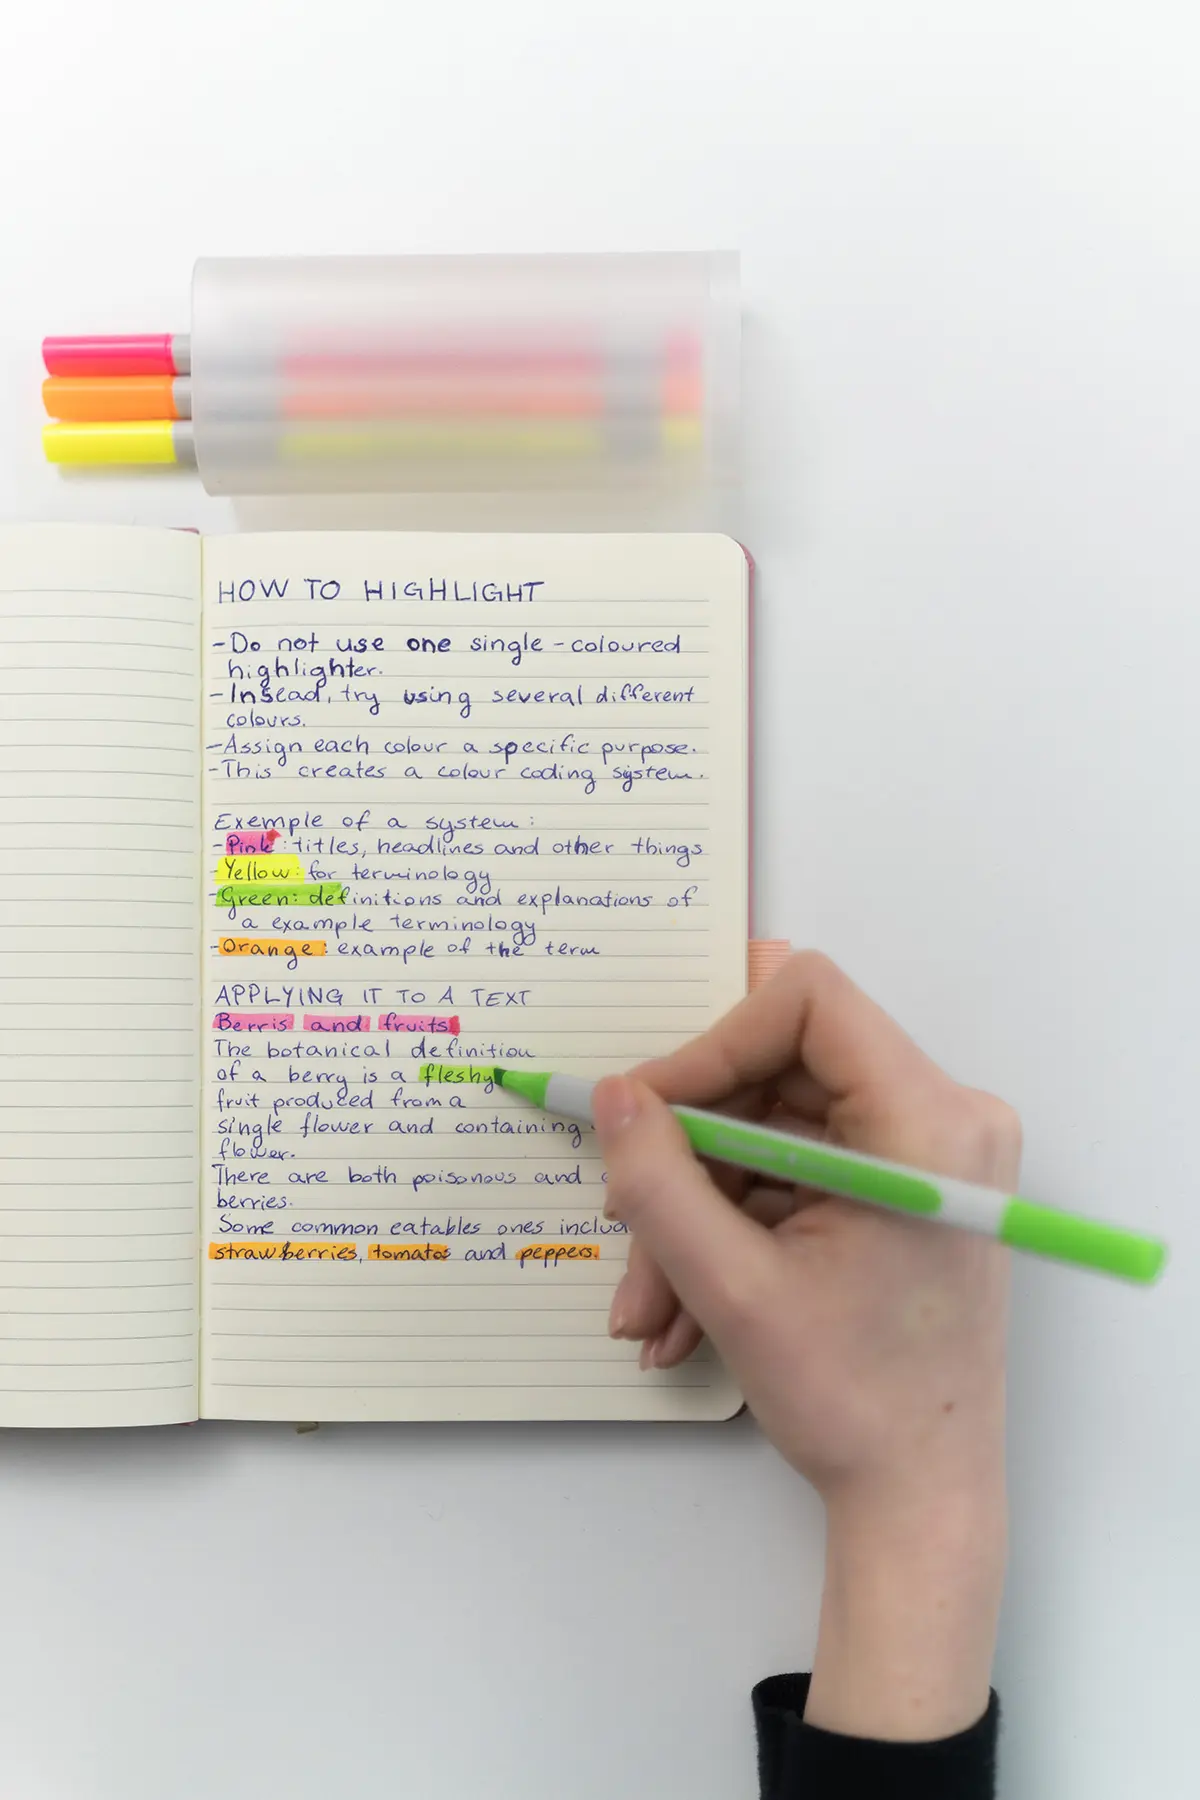 HOW TO HIGHLIGHT
-Do not use one single-coloured
highlighter.
-Insead, try using several different
colours.
-Assign each colour a specific purpose.
-This creates a colour coding system.
Exemple of a system:
-Pink: titles, headlines and other things
-Yellow: for terminology
-Green: definitions and explanations of
a example terminology
-Orange: example of the term
APPLYING IT TO A TEXT
Berris and fruits
The botanical definition
of a berry is a fleshy
fruit produced from a
single flower and containing
flower.
There are both poisonous and
berries.
Some common eatables ones
strawberries, tomatos and peppers.